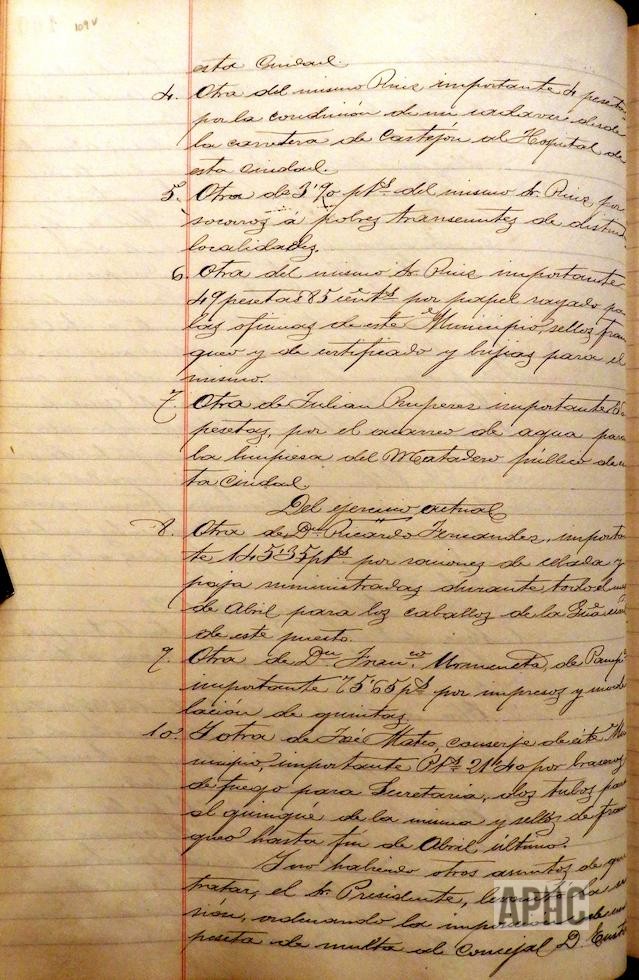 109 v
esta Ciudad.
4. Otra del mismo Ruiz importante 4 pesetas
por la condición de un cadaver desde
la carretera de Castejón al Hospital de
esta ciudad.
5. Otra de 3'90 pts del mismo Sr. Ruiz, por
socorros á pobres transeuntes de distin
localidades.
6. Otra del mismo Sr. Ruiz importante
49 pesetas 85 cents por papel rayado pa
las oficinas de este Municipio, sellos fran
queo y de certificado y bujias para el
mismo.
7. Otra de Julian Ruperez importante
pesetas, por el acarreo de agua para
la limpiesa del Matadero público de
ta Ciudad
Del ejercicio actual
8. Otra de Dn Ricardo Fernandez, importa
te 145'35 pts por raciones de cebada y
paja suministradas durante todo el mes
de Abril para los caballos de la Guâ civil
de este puesto.
9. Otra de Dn Franco de Pamp
importante 75'65 pts por impresos y
lación de quintas
10. Y otra de José Mateo, conserje de este Mu
nicipio, importante Pts 21'40 por braseros
de fuego para Secretaria, dos tubos para
el quinqué de la misma y sellos de fran
queo hasta fin de Abril último.
Y no habiendo otros asuntos de que
tratar, el Sr. Presidente, levantó la se
sión, ordenando la imposición de una
peseta de multa al Concejal D.
APHC